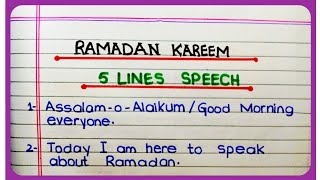 RAMADAN KAREEM
5 LINES SPEECH
1- Assalam-o-Alaikum/Good Morning
everyone.
2- Today I am here to speak
about Ramadan.